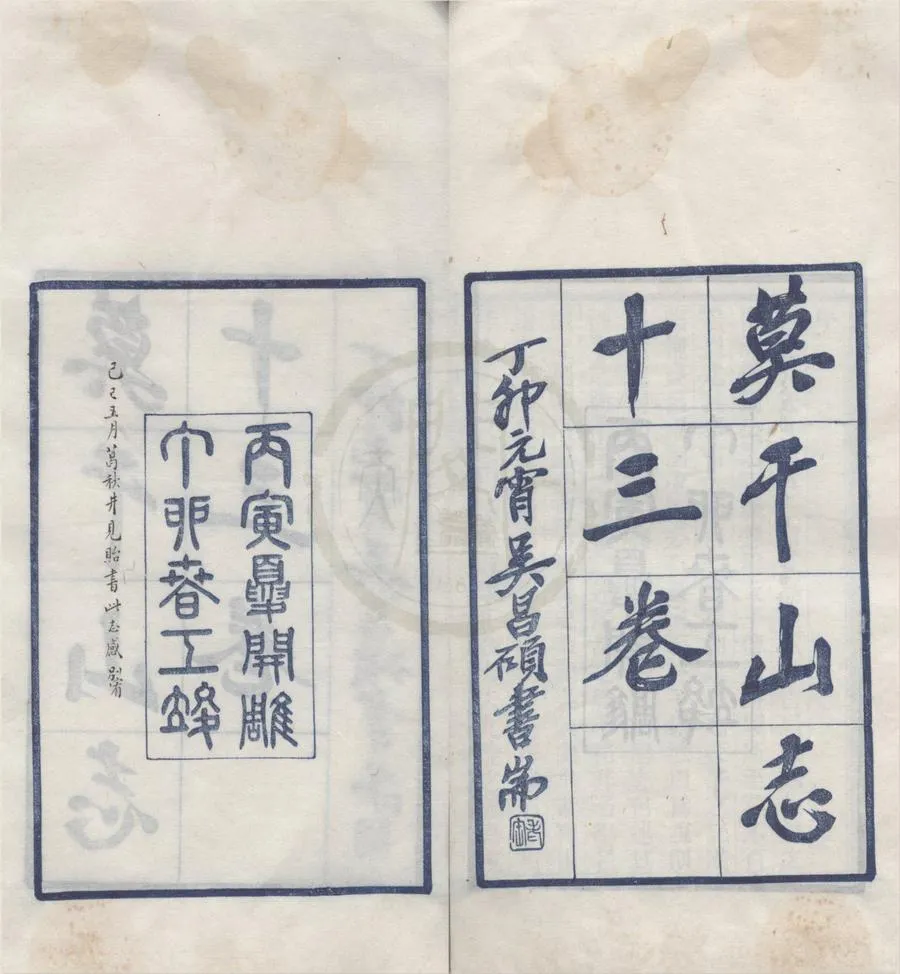 莫干山志
十三卷
丁卯元宵吳昌碩書耑
丙寅夏開雕
丁卯春工竣
己巳五月萬秋井見貽書此志感